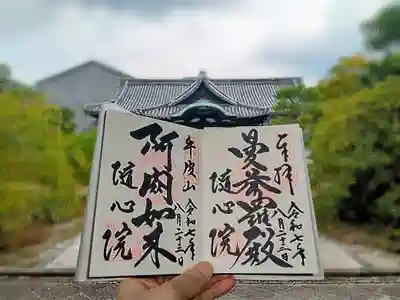 奉拝
曼荼羅殿
随心院
令和七年
八月二十三日
牛皮山
阿閦如来
随心院
令和七年
八月二十三日